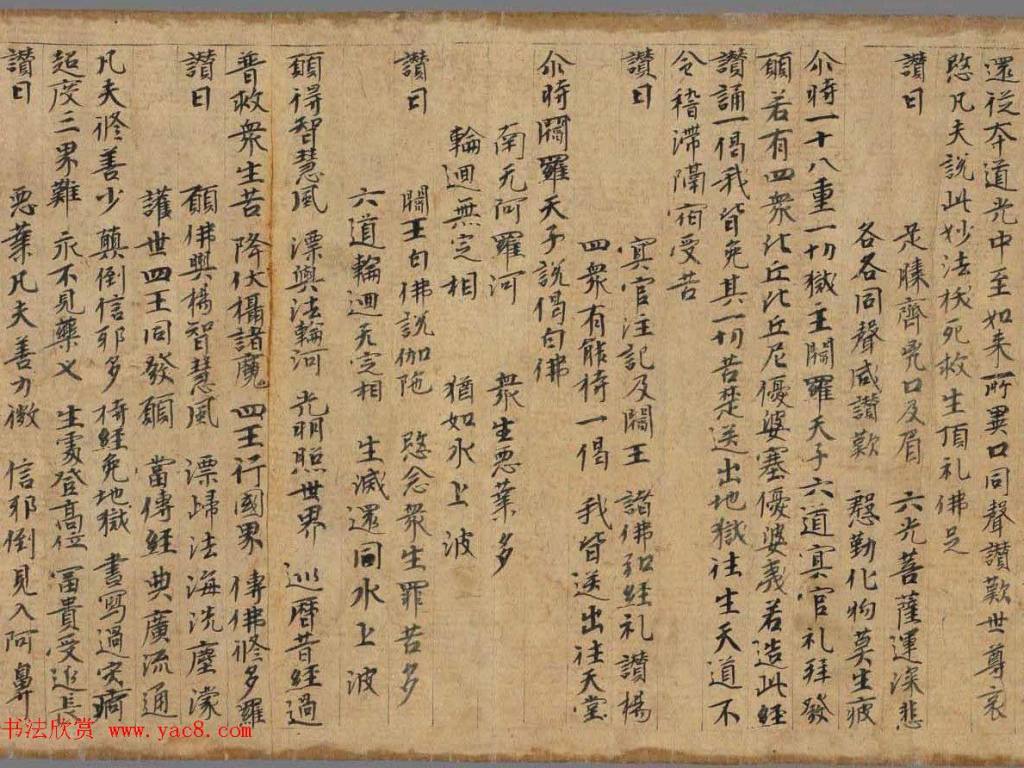 還從本道光中至如來所異口同聲讚歎世尊哀
愍凡夫說此妙法拔死救生頂礼佛足
讚曰　足膝齊兇口及眉　六光菩薩運深悲
各各同聲咸讚歎　慇勤化物莫生疲
尒時一十八重一切獄主閻羅天子六道冥官礼拜發
願若有四衆比丘比丘尼優婆塞優婆義若造此経
讚誦一偈我皆免其一切苦楚送出地獄往生天道不
令稽滯隔宿受苦
讚曰　冥官注記及閻王　諸佛弘経礼讚揚
四衆有能持一偈　我皆送出往天堂
尒時閻羅天子說偈白佛
南无阿羅河　衆生悪葉多
輪迴無定相　猶如水上波
讚曰　閻王白佛說伽陁　愍念衆生罪苦多
六道輪迴无定相　生滅還同水上波
願得智慧風　漂與法輪河　光明照世界　巡曆昔経過
普救衆生苦　降伏攝諸魔　四王行國界　傳佛修多羅
讚曰　願佛興揚智慧風　漂歸法海洗塵濛
護世四王同發願　當傳経典廣流通
凡夫修善少　顛倒信耶多　持経免地獄　書寫過灾痾
超度三界難　永不見藥义　生處登高位　冨貴受延長
讚曰　悪葉凡夫善力微　信耶倒見入阿鼻
书法欣赏 www.yac8.com